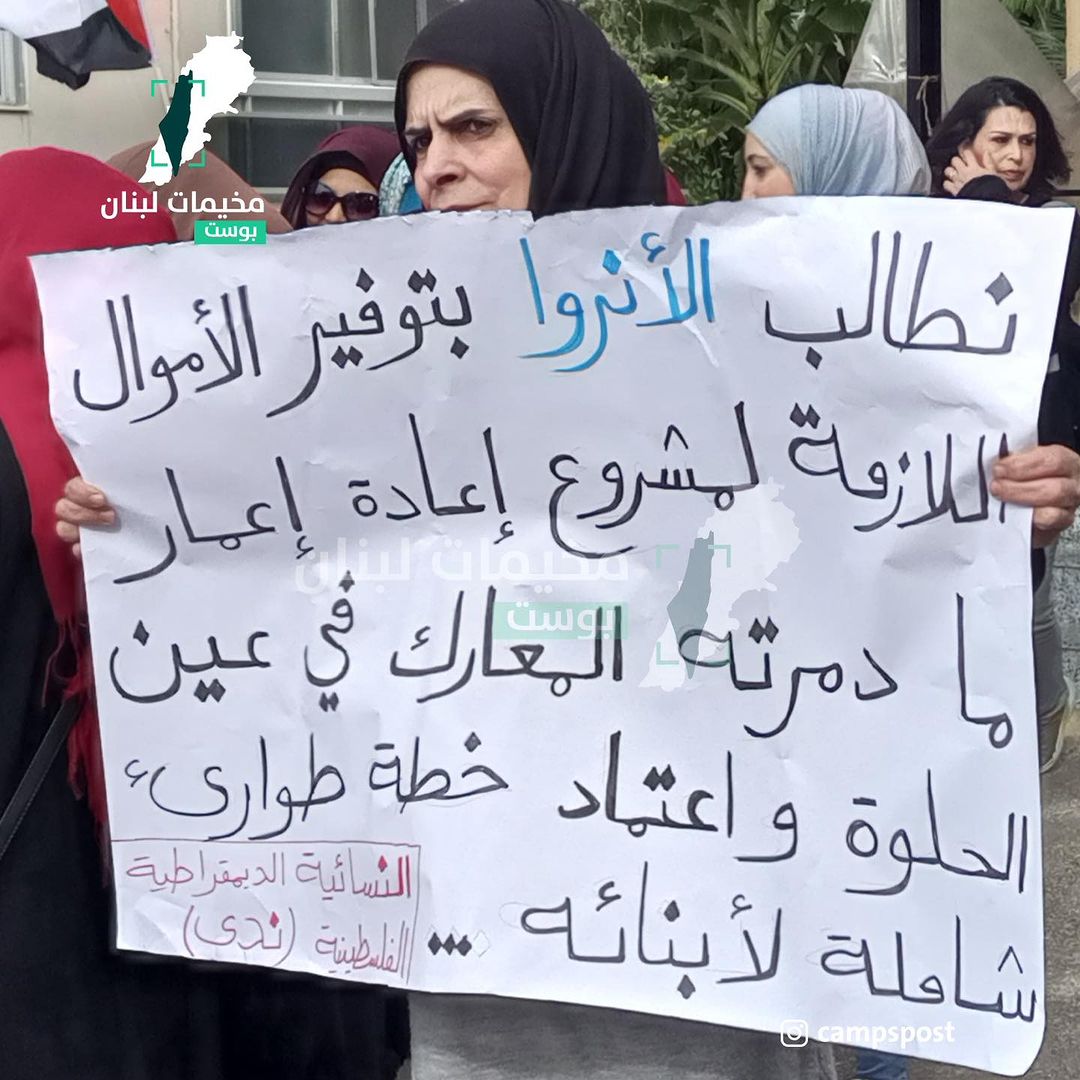 مخيمات لبنان
بوست
نطالب الأنروا بتوفير الأموال
اللازمة لمشروع إعادة إعمار
مخيمات لبنان
بوست
ما دمرته المعارك في عين
الحلوة واعتماد خطة طوارئ
شاملة لأبنائه ...
النسائية الديمقراطية
الفلسطينية (ندى)
campspost